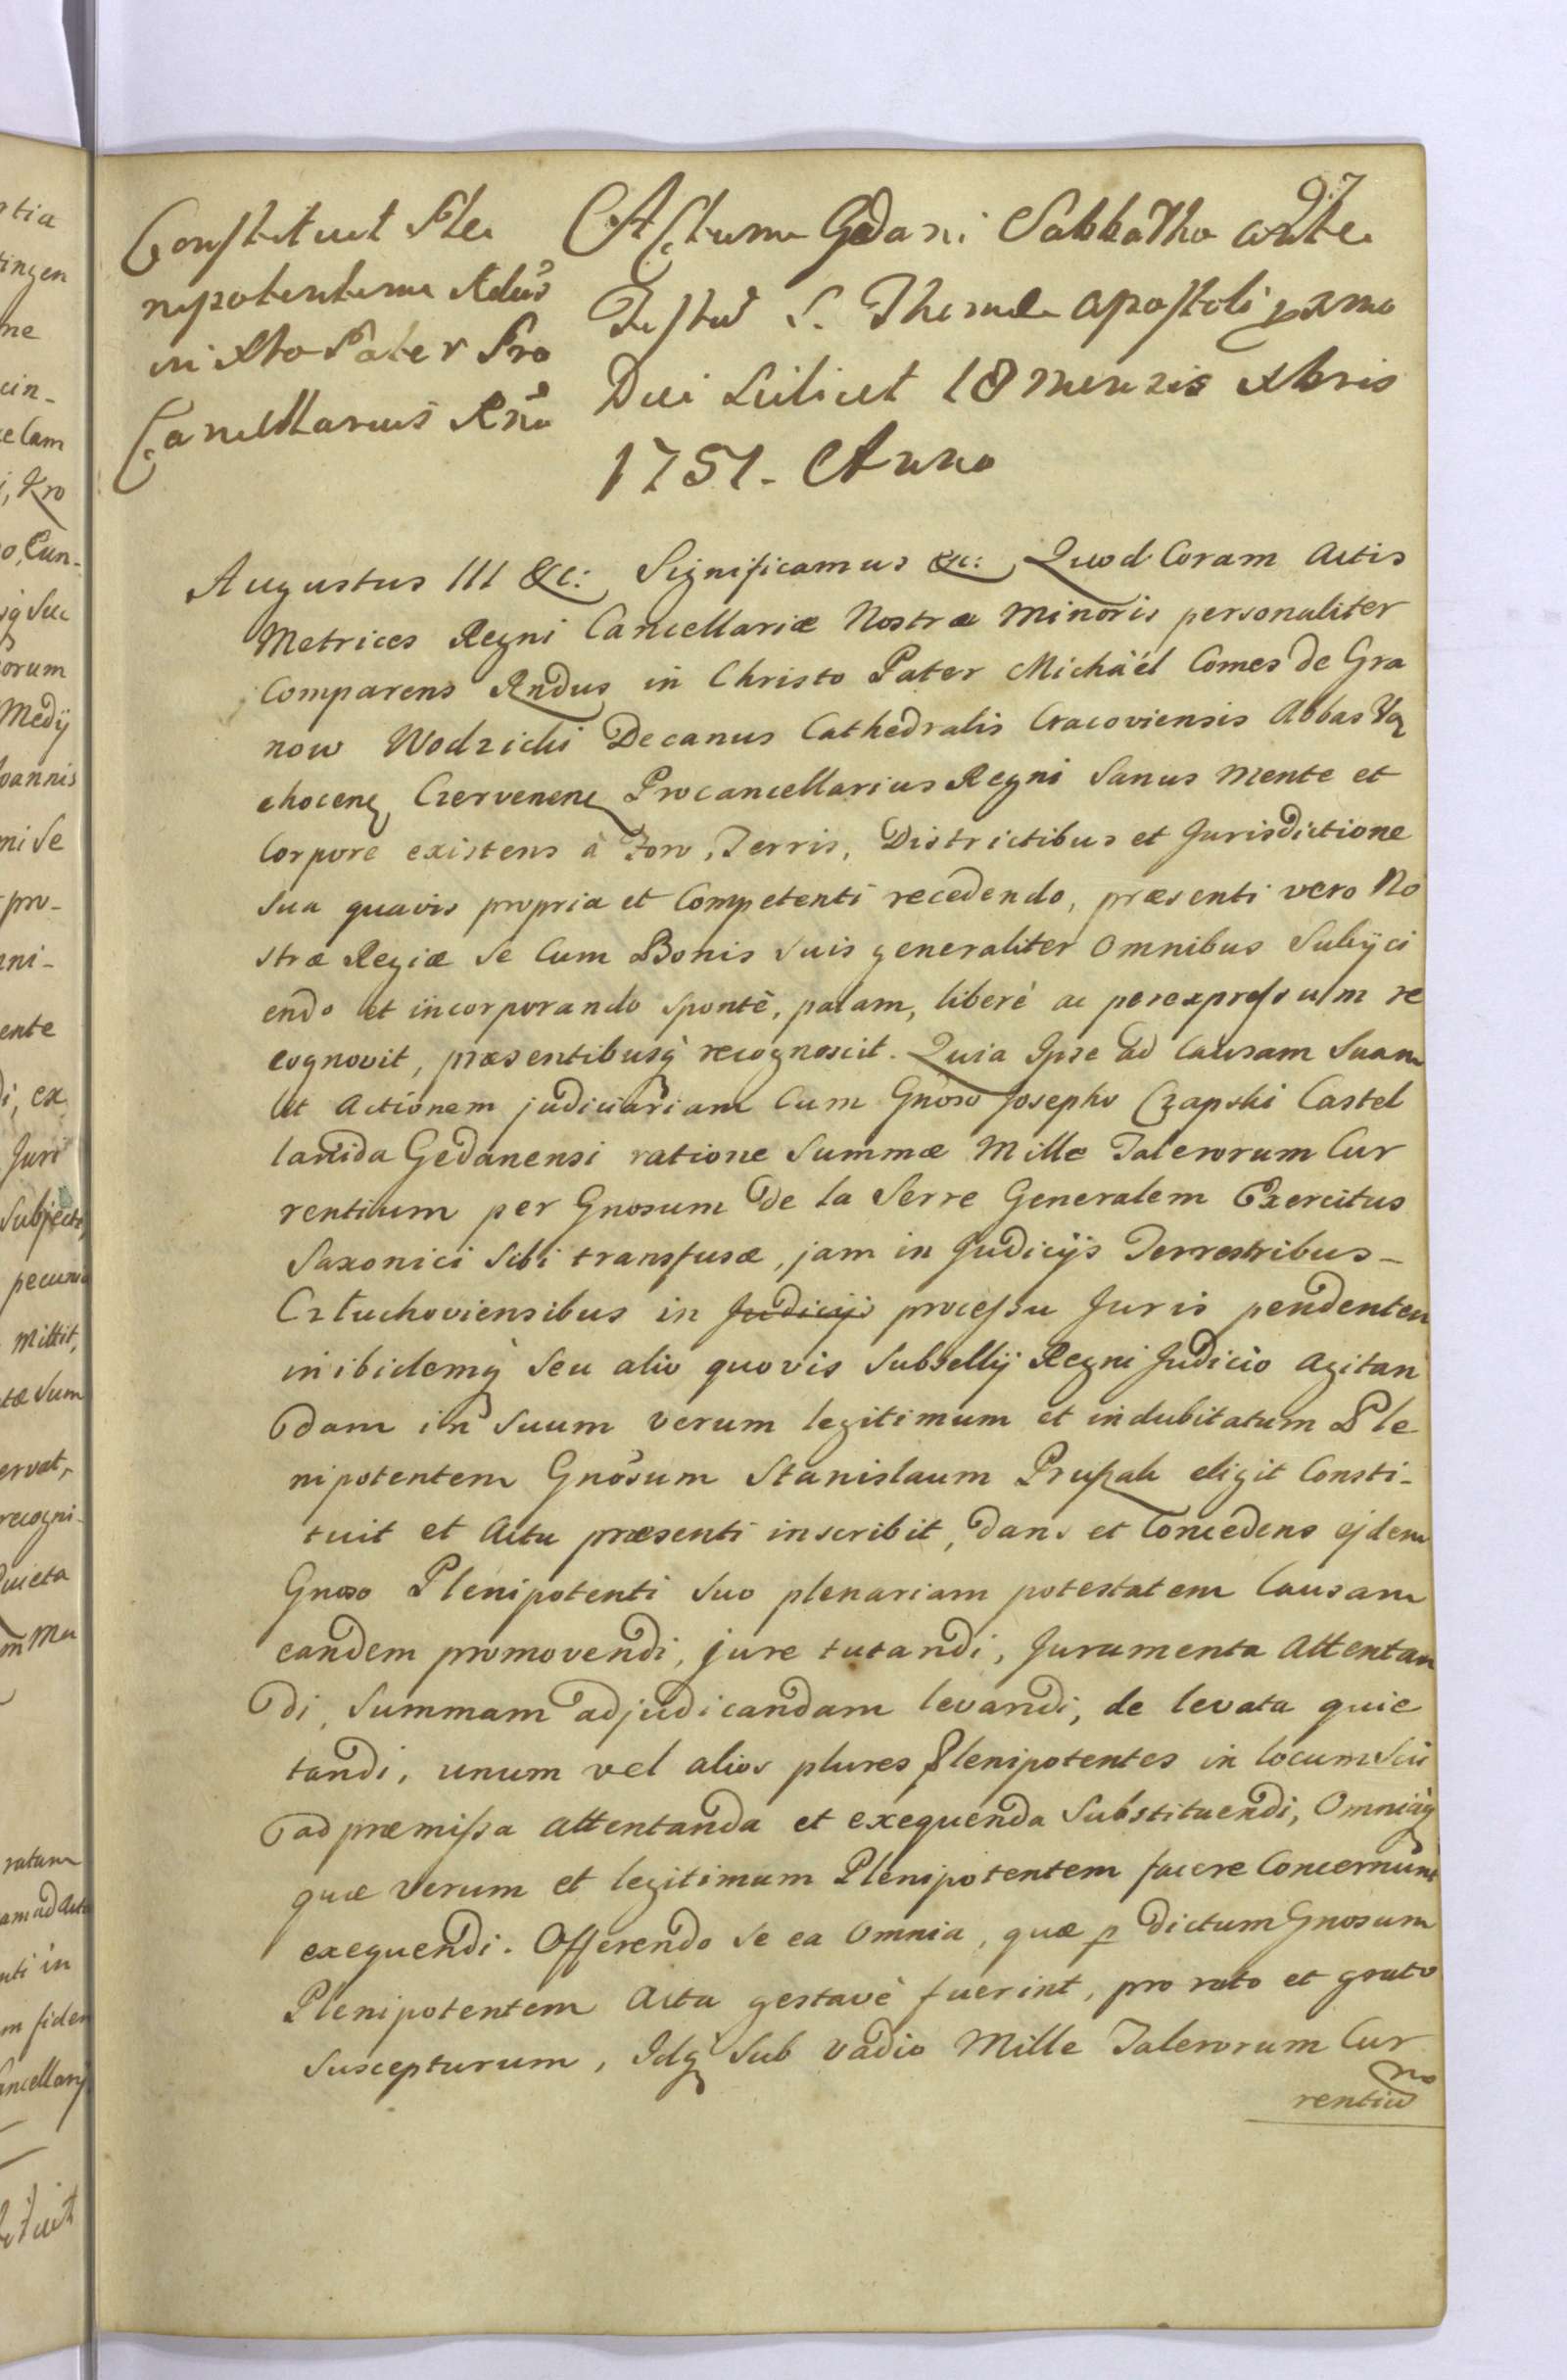 97
Constituit Ple
nipotentem Rdus
in Xto Pater Pro
Cancellarius Rni
Actum Gedani Sabbatho ante
Festum S. Thomae apostoli proximo
Die scilicet 18 mensis Xbris
1751. Anno
Augustus III &c: Significamus &c: Quod Coram Actis
Metrices Regni Cancellariæ Nostræ Minoris personaliter
Comparens Rndus in Christo Pater Michäel Comes de Gra
now Wodzicki Decanus Cathedralis Cracoviensis Abbas Va
chocens Czervenens Procancellarius Regni Sanus Mente et
Corpore existens à Foro, Terris, Districtibus et Jurisdictione
sua quavis propria et Competenti recedendo, præsenti vero No
stræ Regiæ se Cum Bonis suis generaliter Omnibus Subijci
endo et incorporando spontè, palam, liberè ac per expressum re
cognovit, præsentibusq recognoscit. Quia Ipse ad Causam Suam
et Actionem judiciariam Cum Gnoso Josepho Czapski Castel
lanida Gedanensi ratione Summæ Mille Talerorum Cur
rentium per Gnosum de la Serre Generalem Exercitus
Saxonici Sibi transfusæ, jam in Judicijs Terrestribus
Człuchoviensibus in Judicijs processu Juris pendentem
inibidemq seu alio quovis Subsellij Regni Judicio Agitan
dam in Suum Verum legitimum et indubitatum Ple
nipotentem Gnosum Stanislaum Prusak eligit Consti-
tuit et Actu præsenti inscribit, dans et Concedens ejdem
Gnoso Plenipotenti suo plenariam potestatem Causam
eandem promovendi, jure tutandi, Juramenta Attentan
di, Summam adjudicandam levandi, de levata quie
tandi, unum vel alios plures Plenipotentes in locum Sui
ad præmissa attentanda et exequenda Substituendi, Omniaq
quæ Verum et legitimum Plenipotentem facere Concernunt
exequendi. Offerendo se ea Omnia, quæ p dictum Gnosum
Plenipotentem Acta gestavè fuerint, pro rato et grato
Suscepturum, Idq Sub Vadio Mille Talerorum Cur
rentiu